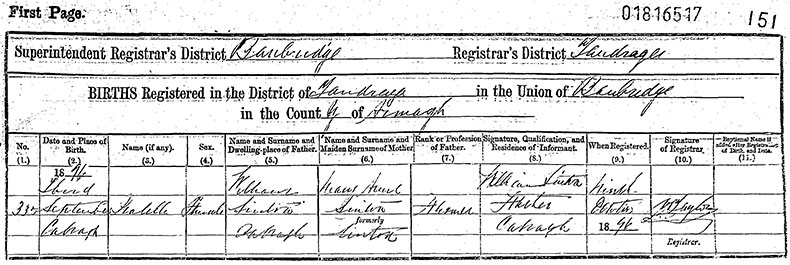 First Page.
01816517
151
Superintendent Registrar's District Banbridge Registrar's District Tandragee
BIRTHS Registered in the District of Tandragee in the Union of Banbridge
in the County of Armagh
No. (1.) Date and Place of Birth. (2.) Name (if any). (3.) Sex. (4.) Name and Surname and Dwelling-place of Father. (5.) Name and Surname and Maiden Surname of Mother. (6.) Rank or Profession of Father. (7.) Signature, Qualification, and Residence of Informant. (8.) When Registered. (9.) Signature of Registrar. (10.) Baptismal Name if added after Registration of Birth, and Date. (11.)
1896
Third William William Sinton
September Isabella Female Sinton Sinton Farmer Father October
Cabragh Cabragh formerly Sinton Cabragh 1896
Registrar.